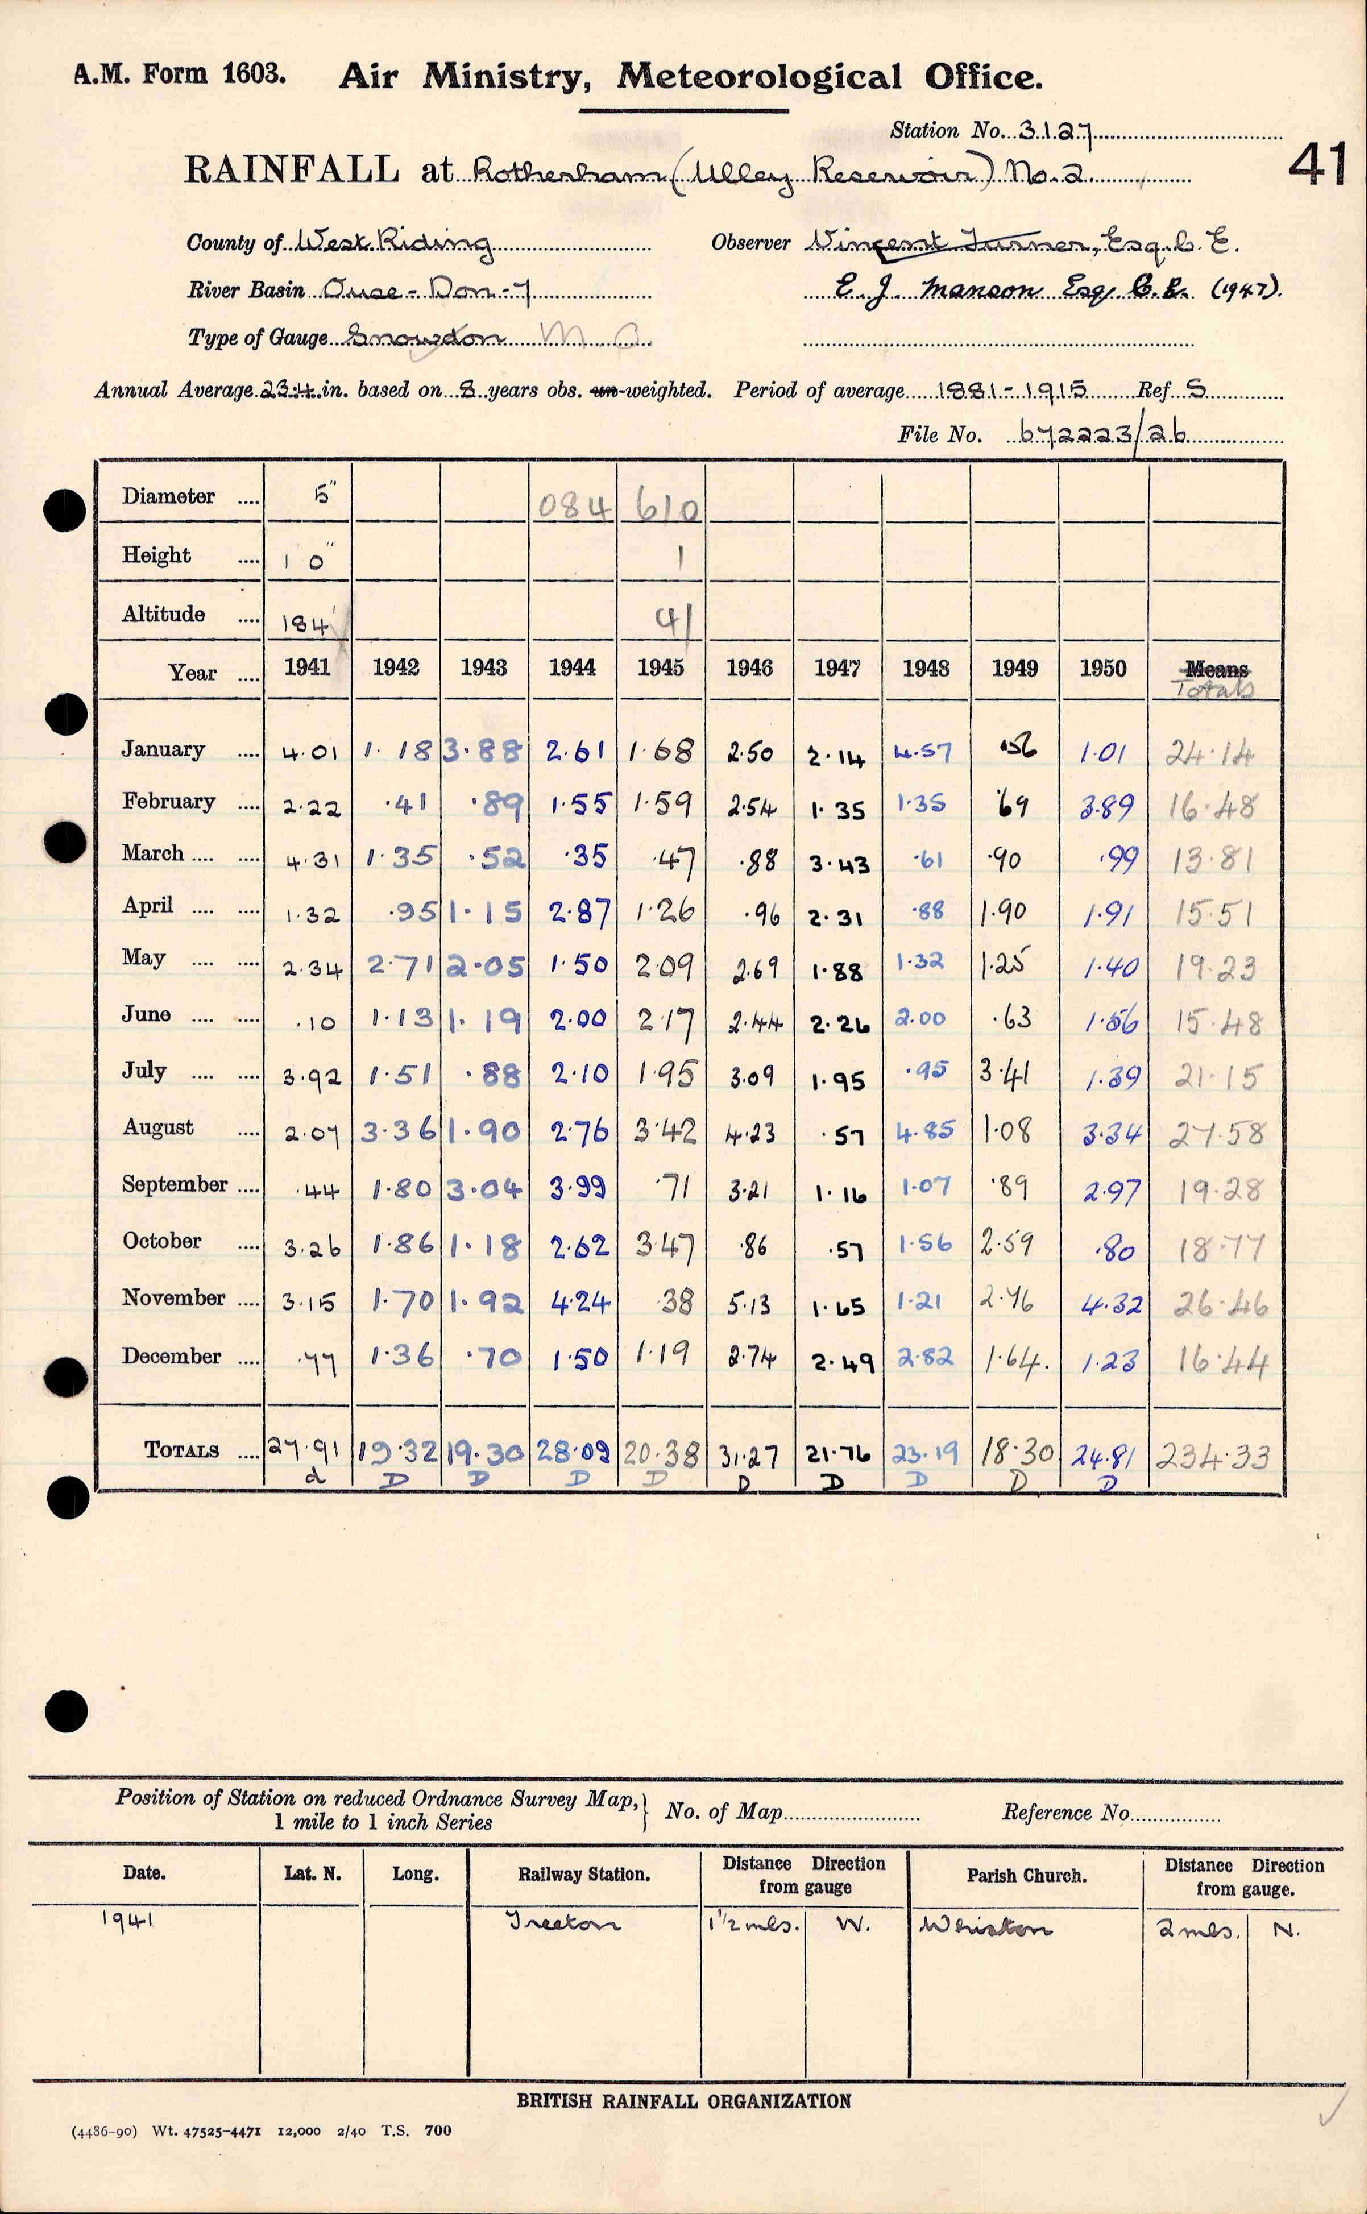 A.M. Form 1603. Air Ministry, Meteorological Office.
Station No. 3127
41
RAINFALL at Rotherham (Ulley Reservoir) No. 2
County of West Riding Observer Vincent Turner, Esq. C. E.
River Basin Ouse - Don - 7 E. J. Manson Esq C.E. (1947).
Type of Gauge Snowdon M.O.
Annual Average 23.4 in. based on 8 years obs. un-weighted. Period of average 1881-1915 Ref S
File No. 672223/26
Diameter .... 5" 084 610
Height .... 1 0" 1
Altitude .... 184' 41
Year .... 1941 1942 1943 1944 1945 1946 1947 1948 1949 1950 Means Totals
January .... 4.01 1.18 3.88 2.61 1.68 2.50 2.14 4.57 .56 1.01 24.14
February .... 2.22 .41 .89 1.55 1.59 2.54 1.35 1.35 .69 3.89 16.48
March .... .... 4.31 1.35 .52 .35 .47 .88 3.43 .61 .90 .99 13.81
April .... .... 1.32 .95 1.15 2.87 1.26 .96 2.31 .88 1.90 1.91 15.51
May .... .... 2.34 2.71 2.05 1.50 2.09 2.69 1.88 1.32 1.25 1.40 19.23
June .... .... .10 1.13 1.19 2.00 2.17 2.44 2.26 2.00 .63 1.56 15.48
July .... .... 3.92 1.51 .88 2.10 1.95 3.09 1.95 .95 3.41 1.39 21.15
August .... 2.07 3.36 1.90 2.76 3.42 4.23 .57 4.85 1.08 3.34 27.58
September .... .44 1.80 3.04 3.99 .71 3.21 1.16 1.07 .89 2.97 19.28
October .... 3.26 1.86 1.18 2.62 3.47 .86 .57 1.56 2.59 .80 18.77
November .... 3.15 1.70 1.92 4.24 .38 5.13 1.65 1.21 2.76 4.32 26.46
December .... .77 1.36 .70 1.50 1.19 2.74 2.49 2.82 1.64. 1.23 16.44
TOTALS .... 27.91 19.32 19.30 28.09 20.38 31.27 21.76 23.19 18.30 24.81 234.33
d D D D D D D D D D
Position of Station on reduced Ordnance Survey Map, } No. of Map Reference No.
1 mile to 1 inch Series
Date. Lat. N. Long. Railway Station. Distance from gauge Direction Parish Church. Distance Direction from gauge.
1941 Treeton 1 1/2 mls. W. Whiston 2 mls. N.
BRITISH RAINFALL ORGANIZATION
(4486-90) Wt. 47525-4471 12,000 2/40 T.S. 700